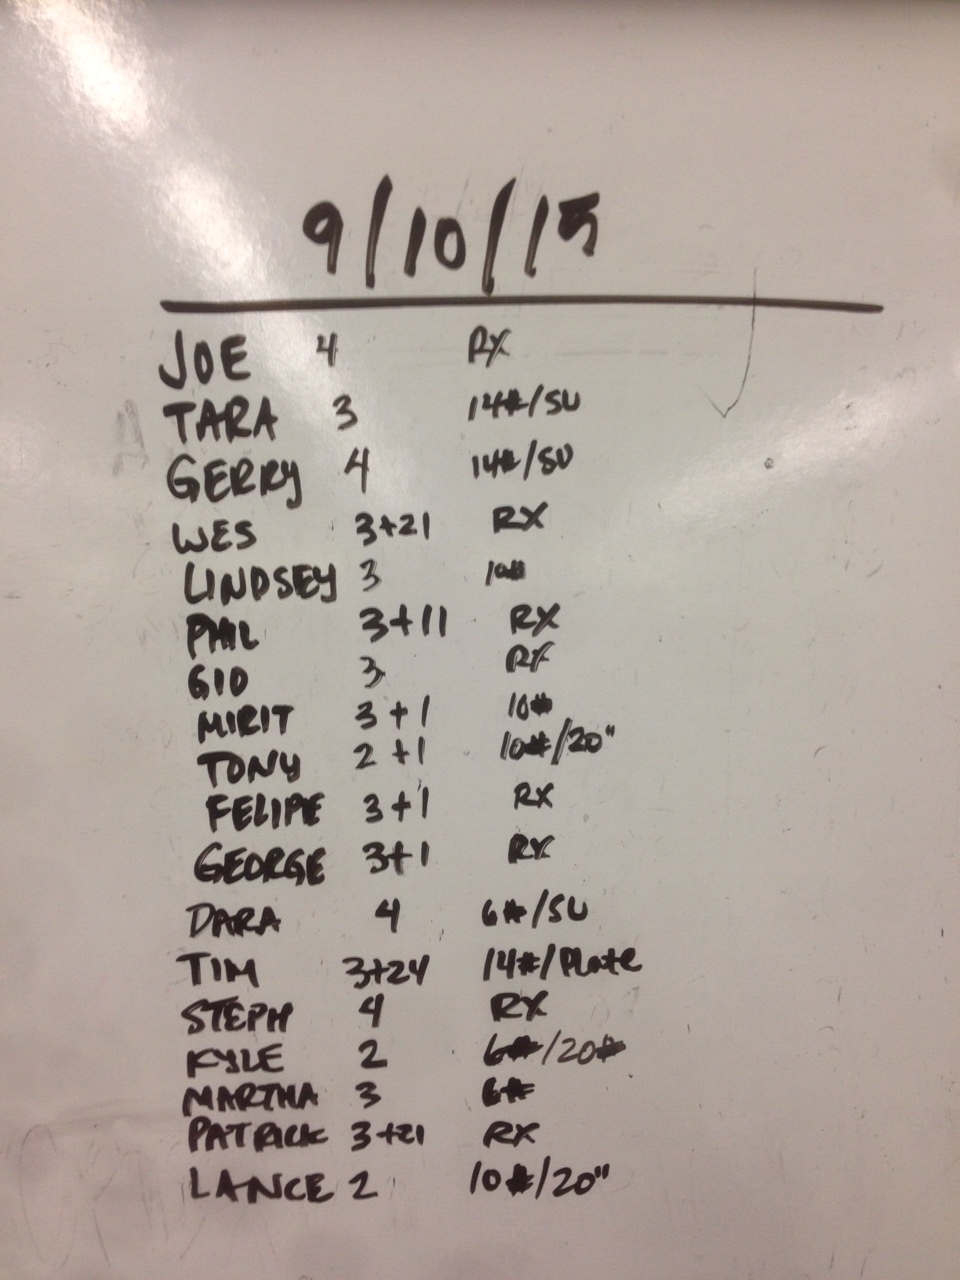 9/10/15
JOE 4 RX
TARA 3 14#/SU
GERRY 4 14#/SU
WES 3+21 RX
LINDSEY 3 10#
PHIL 3+11 RX
GIO 3 RX
MIRIT 3+1 10#
TONY 2+1 10#/20"
FELIPE 3+1 RX
GEORGE 3+1 RX
DARA 4 6#/SU
TIM 3+24 14#/Plate
STEPH 4 RX
KYLE 2 6#/20#
MARTHA 3 6#
PATRICK 3+21 RX
LANCE 2 10#/20"